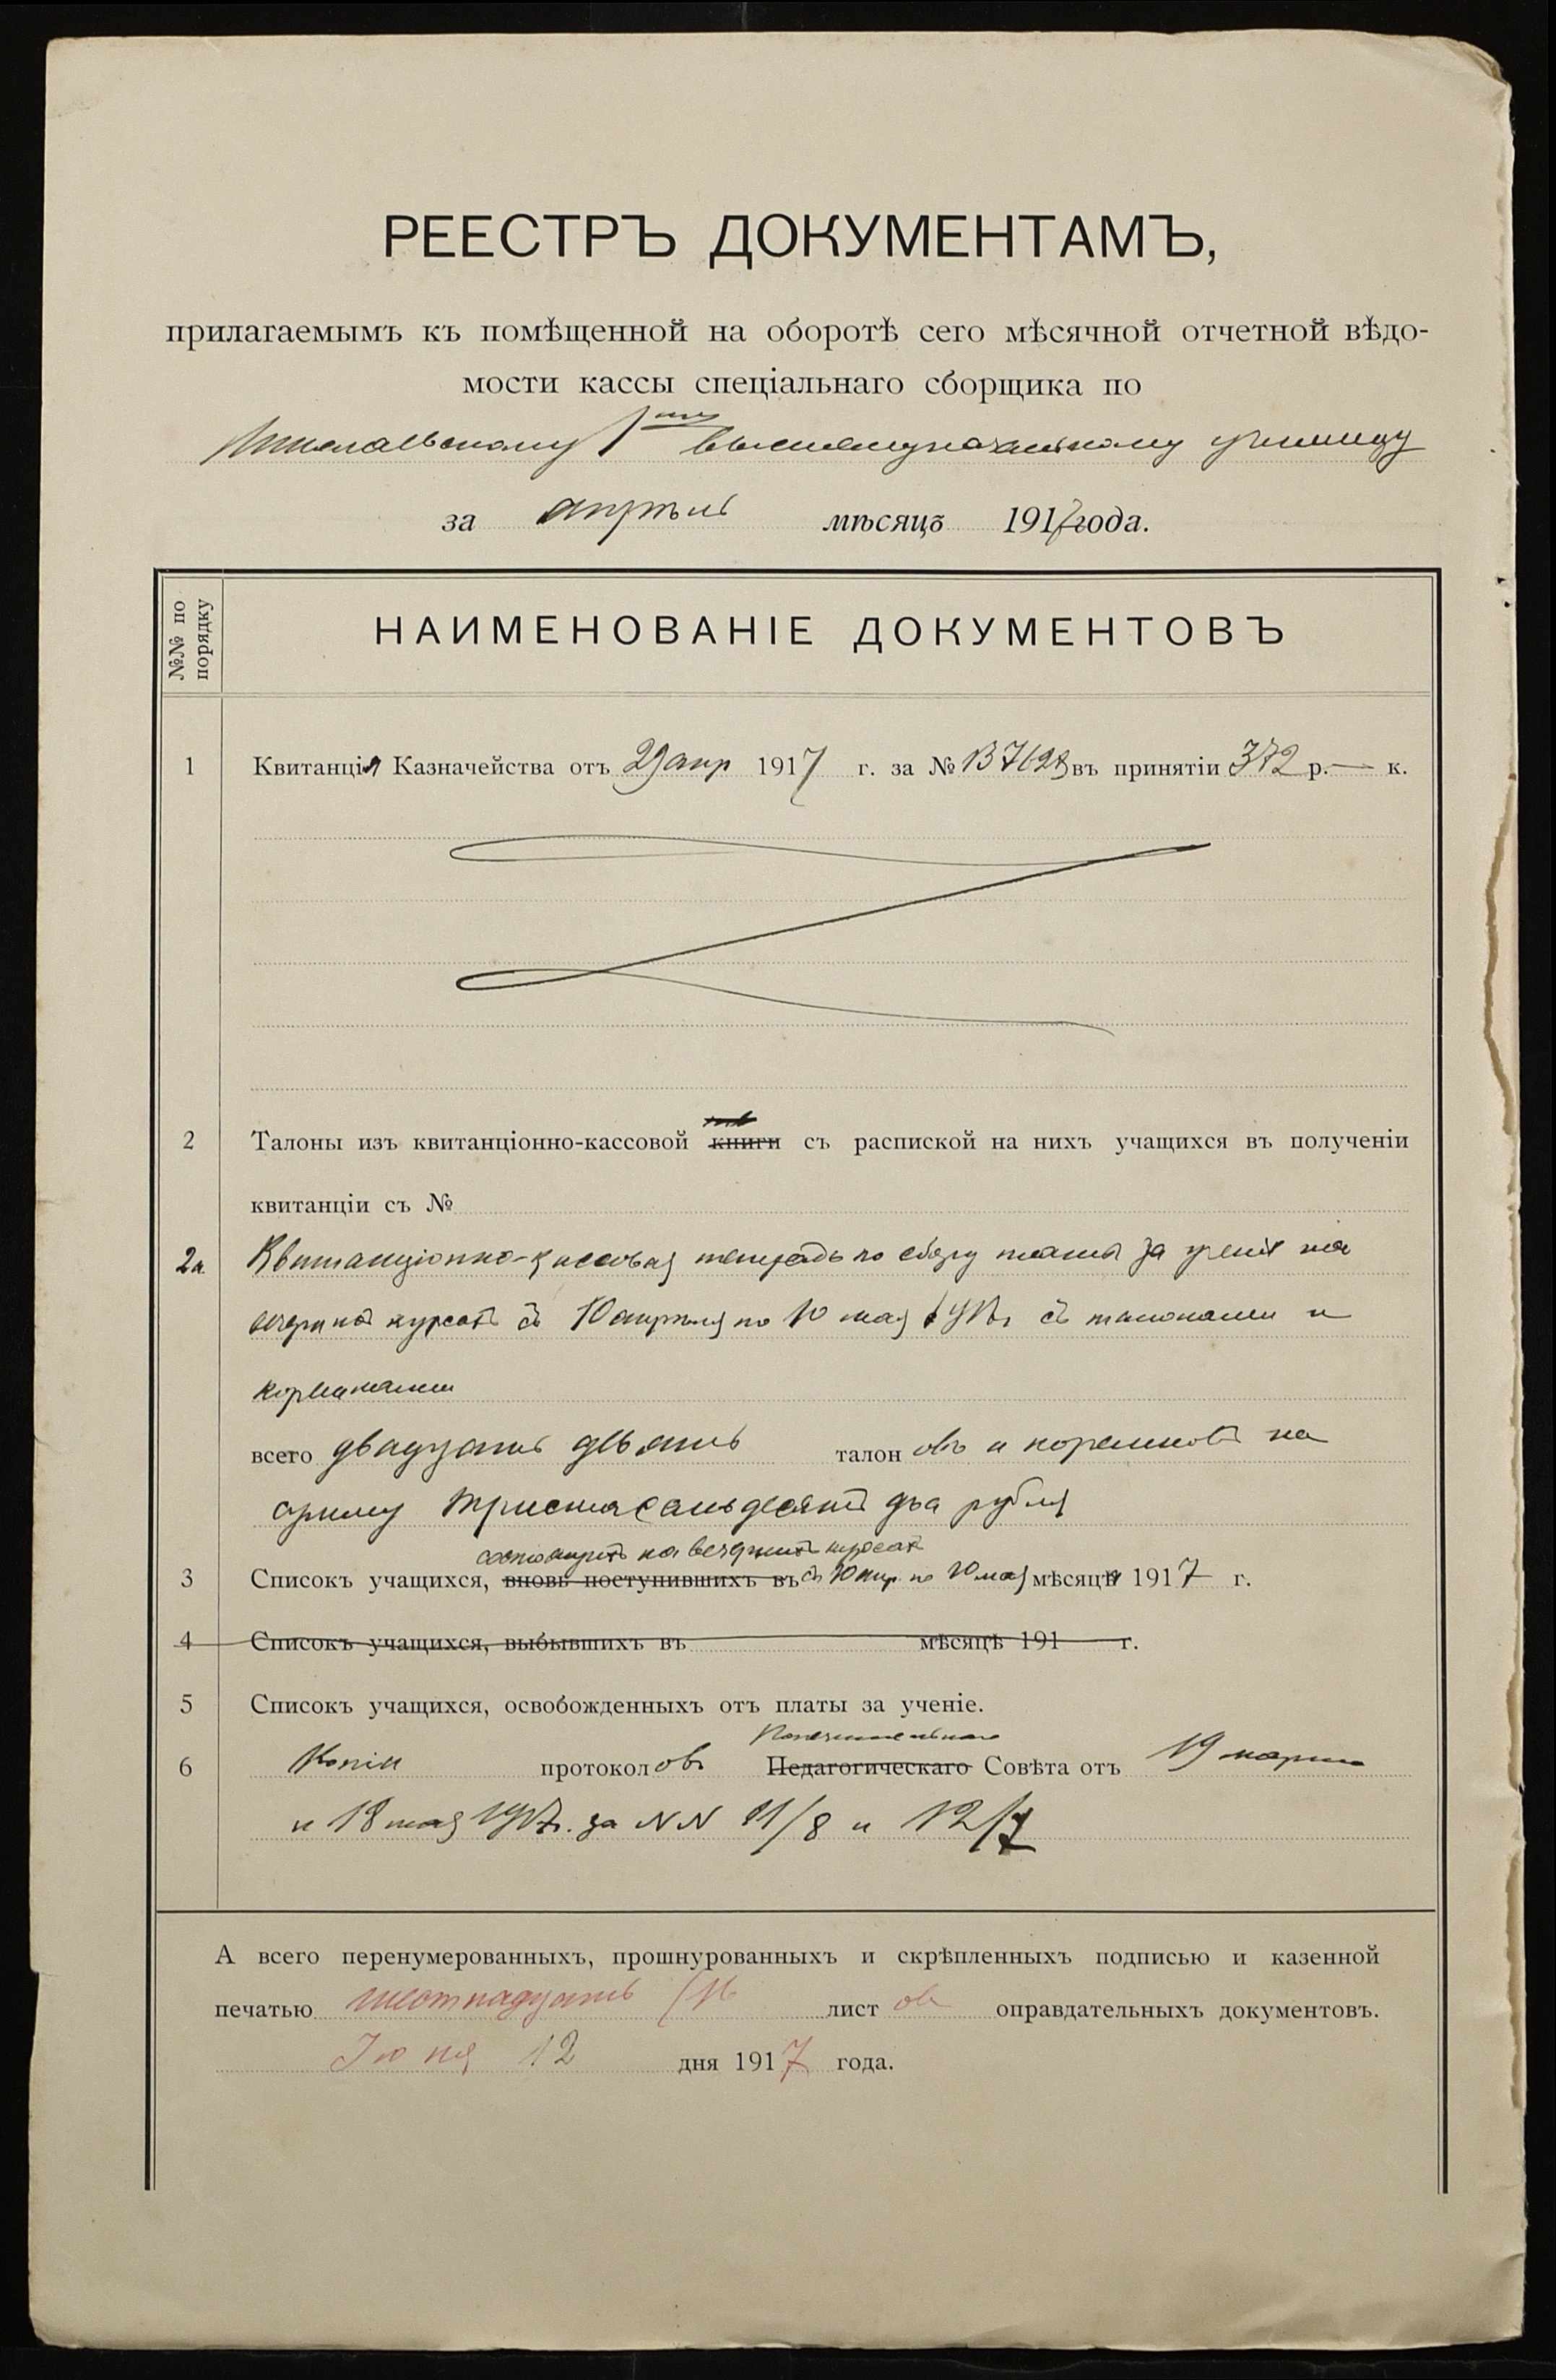 РЕЕСТРЪ ДОКУМЕНТАМЪ,
прилагаемымъ къ помѣщенной на оборотѣ сего мѣсячной отчетной вѣдо-
мости кассы спеціальнаго сборщика по
Николаевскому 1му высшеначальному училищу
за апрѣль мѣсяцъ 1917 года.
№№ по порядку
НАИМЕНОВАНІЕ ДОКУМЕНТОВЪ
1 Квитанція Казначейства отъ 29 апр 1917 г. за № въ принятіи 372 р. — к.
2 Талоны изъ квитанціонно-кассовой книги съ распиской на нихъ учащихся въ полученіи
квитанціи съ №
2а Квитанціонно-кассовая тетрадь по сбору платы за ученіе на
вечернихъ курсахъ съ 10 апрѣля по 10 мая 1917г. съ талонами и
корешками
всего двадцать девять талоновъ и корешковъ на
сумму триста семьдесятъ два рубля
состоящихъ на вечернихъ курсахъ
3 Списокъ учащихся, вновь поступившихъ въ съ 10 апр. по 10 мая мѣсяця 1917 г.
4 Списокъ учащихся, выбывшихъ въ мѣсяцѣ 191 г.
5 Списокъ учащихся, освобожденныхъ отъ платы за ученіе.
Попечительнаго
6 Копіи протоколовъ Педагогическаго Совѣта отъ 19 марта
и 18 мая 1917г. за NN 11/8 и 12/7
А всего перенумерованныхъ, прошнурованныхъ и скрѣпленныхъ подписью и казенной
печатью шестнадцать (16 листовъ оправдательныхъ документовъ.
Іюня 12 дня 1917 года.